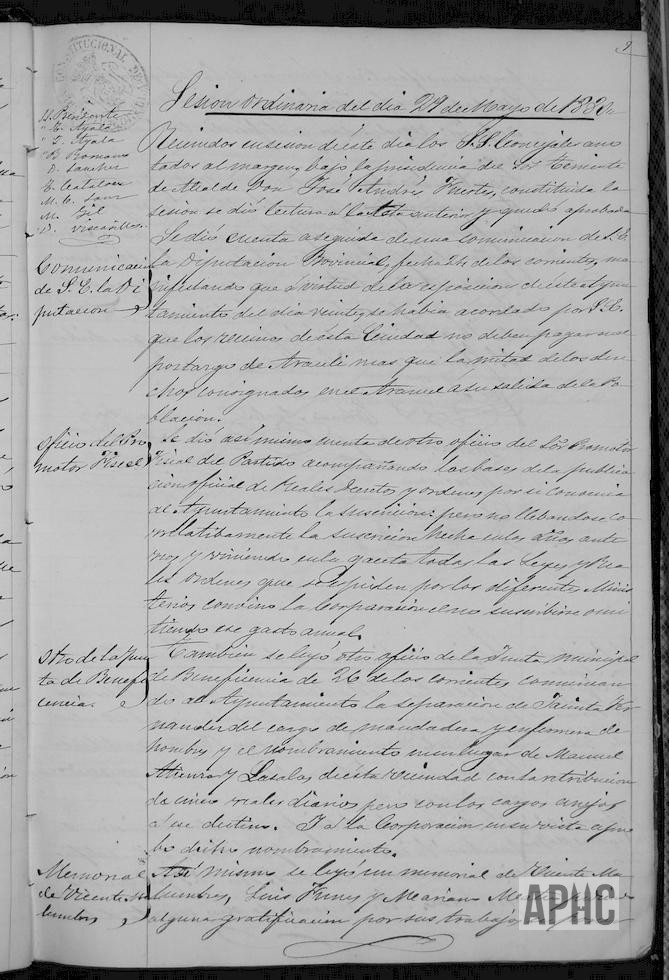 CONSTITUCIONAL DE
Sesion ordinaria del dia 29 de Mayo de
V. Benedicto
" E. Ayala
" S. Ayala
B. Romano
D. Sanchez
E. Catalan
M. C. Sanz
M. Gil
D. Viscasillas
Reunidos en sesion de este dia los S.S. Concejales ano
tados al margen, bajo la presidencia del Sor. Teniente
de Alcalde Don José Andrés Fuertes, constituida la
sesion se dió lectura al acta anterior y quedó aprobada
Comunicacion
de S. E. la Di
putacion
Se dió cuenta a seguida de una comunicacion de S. E.
la Diputacion Provincial, fecha 24 de los corrientes, ma
nifestando que á virtud de la esposicion de este Ayun
tamiento del dia veinte, se habia acordado por S. E.
que los vecinos de esta Ciudad no deben pagar en el
portazgo de mas que la mitad de los dere
chos consignados en el Arancel a su salida de la Po
blacion.
Oficio del Pro
motor Fiscal
Se dió asi mismo cuenta de otro oficio del Sor. Promotor
Fiscal del Partido acompañando las bases de la publica
cion oficial de Reales Decretos y ordenes por si convenia
al Ayuntamiento la suscricion: pero no llebandose co
rrelatibamente la suscricion hecha en los años ante
riores y viniendo en la gaceta todas las Leyes y Rea
les ordenes que se espiden por los diferentes Minis
terios convino la Corporacion el no suscribirse omi
tiendo ese gasto anual.
Otro de la Jun
ta de Benefi
cencia
Tambien se leyó otro oficio de la Junta municipal
de Beneficencia de 26 de los corrientes comunican
do al Ayuntamiento la separacion de Jacinta Fer
nandez del cargo de mandadera y enfermera de
hombres y el nombramiento en su lugar de Manuel
Atienza y Lasala, de esta vecindad con la retribucion
de cinco reales diarios pero con los cargos anejos
a ese destino. Y la Corporacion en su vista apro
bo dicho nombramiento.
Memorial
de Vicente Ma
lumbres
Asi mismo se leyo un memorial de Vicente Ma
lumbres, Luis Funes y Mariano
alguna gratificacion por sus trabajos
APHC